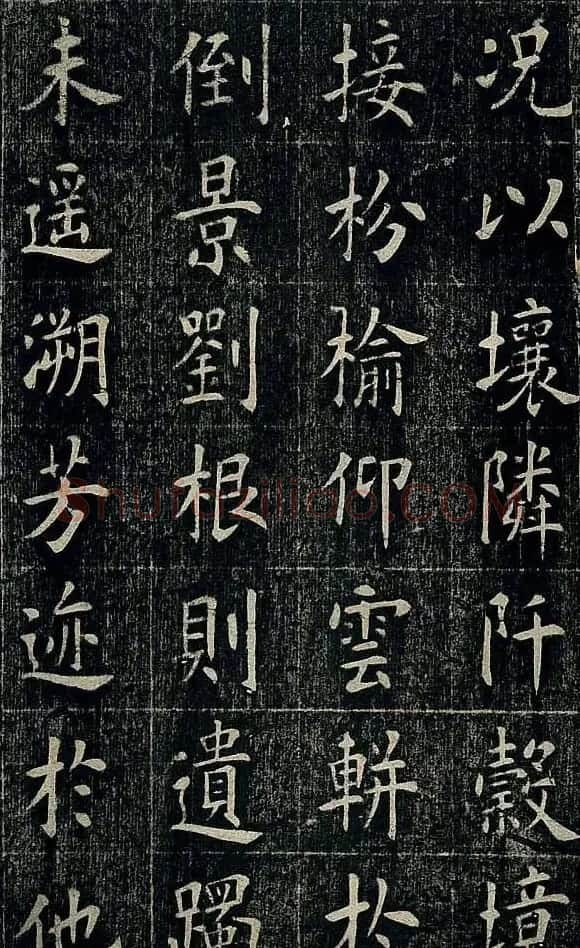 况以壤隣阡境
接枌榆仰雲軿於
倒景劉根則遺躅
未遥溯芳迹於他
shufaziliao.COM